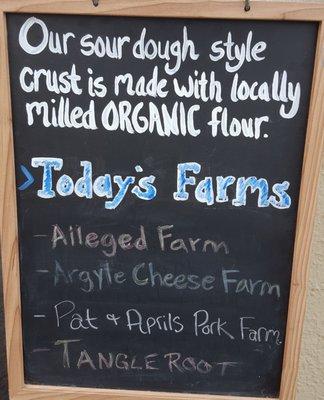 Our sourdough style
crust is made with locally
milled ORGANIC flour.
> Today's Farms
- Alleged Farm
- Argyle Cheese Farm
- Pat & Aprils Pork Farm
- TANGLEROOT